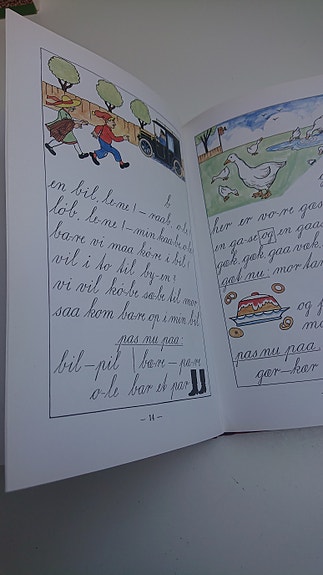 b
en bil, le-ne! – raab, o-le!
löb, le-ne! – min kaa-be, o-le!
ba-re vi maa kö-re i bil!
vil i to til by-en?
vi vil kö-be sæ-be til mor
saa kom bar op i min bil
pas nu paa:
bil – pil bær – pæ-re
o-le bar et par
– 14 –
her er vo-re gæs
en ga-se og en gaas
gæk, gæk, gaa væk,
gæt nu: mor har
og
pas nu paa
gær – kær